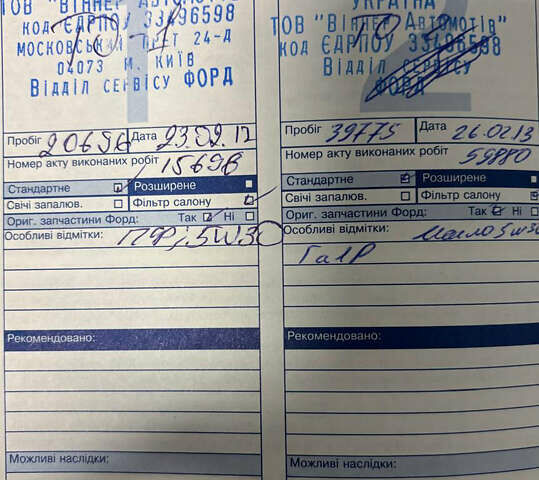 ТОВ "ВІННЕР АВТОМОТІВ"
КОД ЄДРПОУ 33496598
МОСКОВСЬКИЙ 24-Д
04073 М. КИЇВ
ВІДДІЛ СЕРВІСУ ФОРД
1
Пробіг 20696 Дата 23.02.12
Номер акту виконаних робіт 15698
Стандартне Розширене
Свічі запалюв. Фільтр салону
Ориг. запчастини Форд: Так Ні
Особливі відмітки: 5W30
Рекомендовано:
Можливі наслідки:
УКРАЇНА
ТОВ "ВІННЕР АВТОМОТІВ"
КОД ЄДРПОУ 33496598
ВІДДІЛ СЕРВІСУ
ФОРД
2
Пробіг 39775 Дата 26.02.13
Номер акту виконаних робіт 55880
Стандартне Розширене
Свічі запалюв. Фільтр салону
Ориг. запчастини Форд: Так Ні
Особливі відмітки: Масло 5w30
Можливі наслідки:
Рекомендовано: